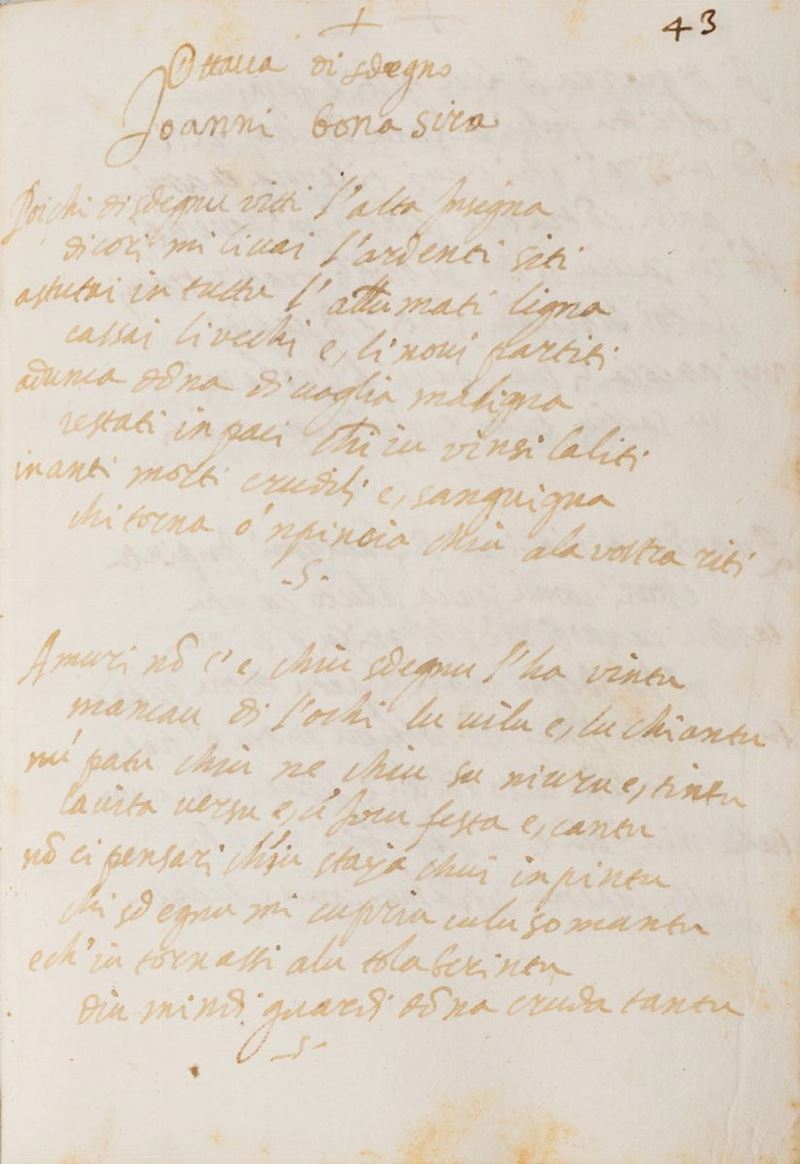 43
Ottava di sdegno
Joanni bona sira
Poichi di sdegnu vitti l'alta Insigna
di cori mi livai l'ardenti siti
astutai in tuttu l'allumati ligna
cassai li vechi e, li novi partiti
adunca dōna di voglia maligna
restati in paci chi iu vinsi la liti
inanti morti crudili e, sanguigna
chi torna ó npincia chiu ala vostra riti
-S-
Amuri nō c'e, chiu sdegnu l'ha vintu
mancau di l'ochi lu vilu e, lu chiantu
nu' patu chiu ne chiu su niuru e, tintu
la vita versu e, a' Jocu festa e, cantu
nō ci pensari chiu staja chui inpintu
chi sdegnu mi cupriu culu so mantu
e ch'iu tornassi alu to laberintu
diu mindi guardi dōna cruda tantu
-S-